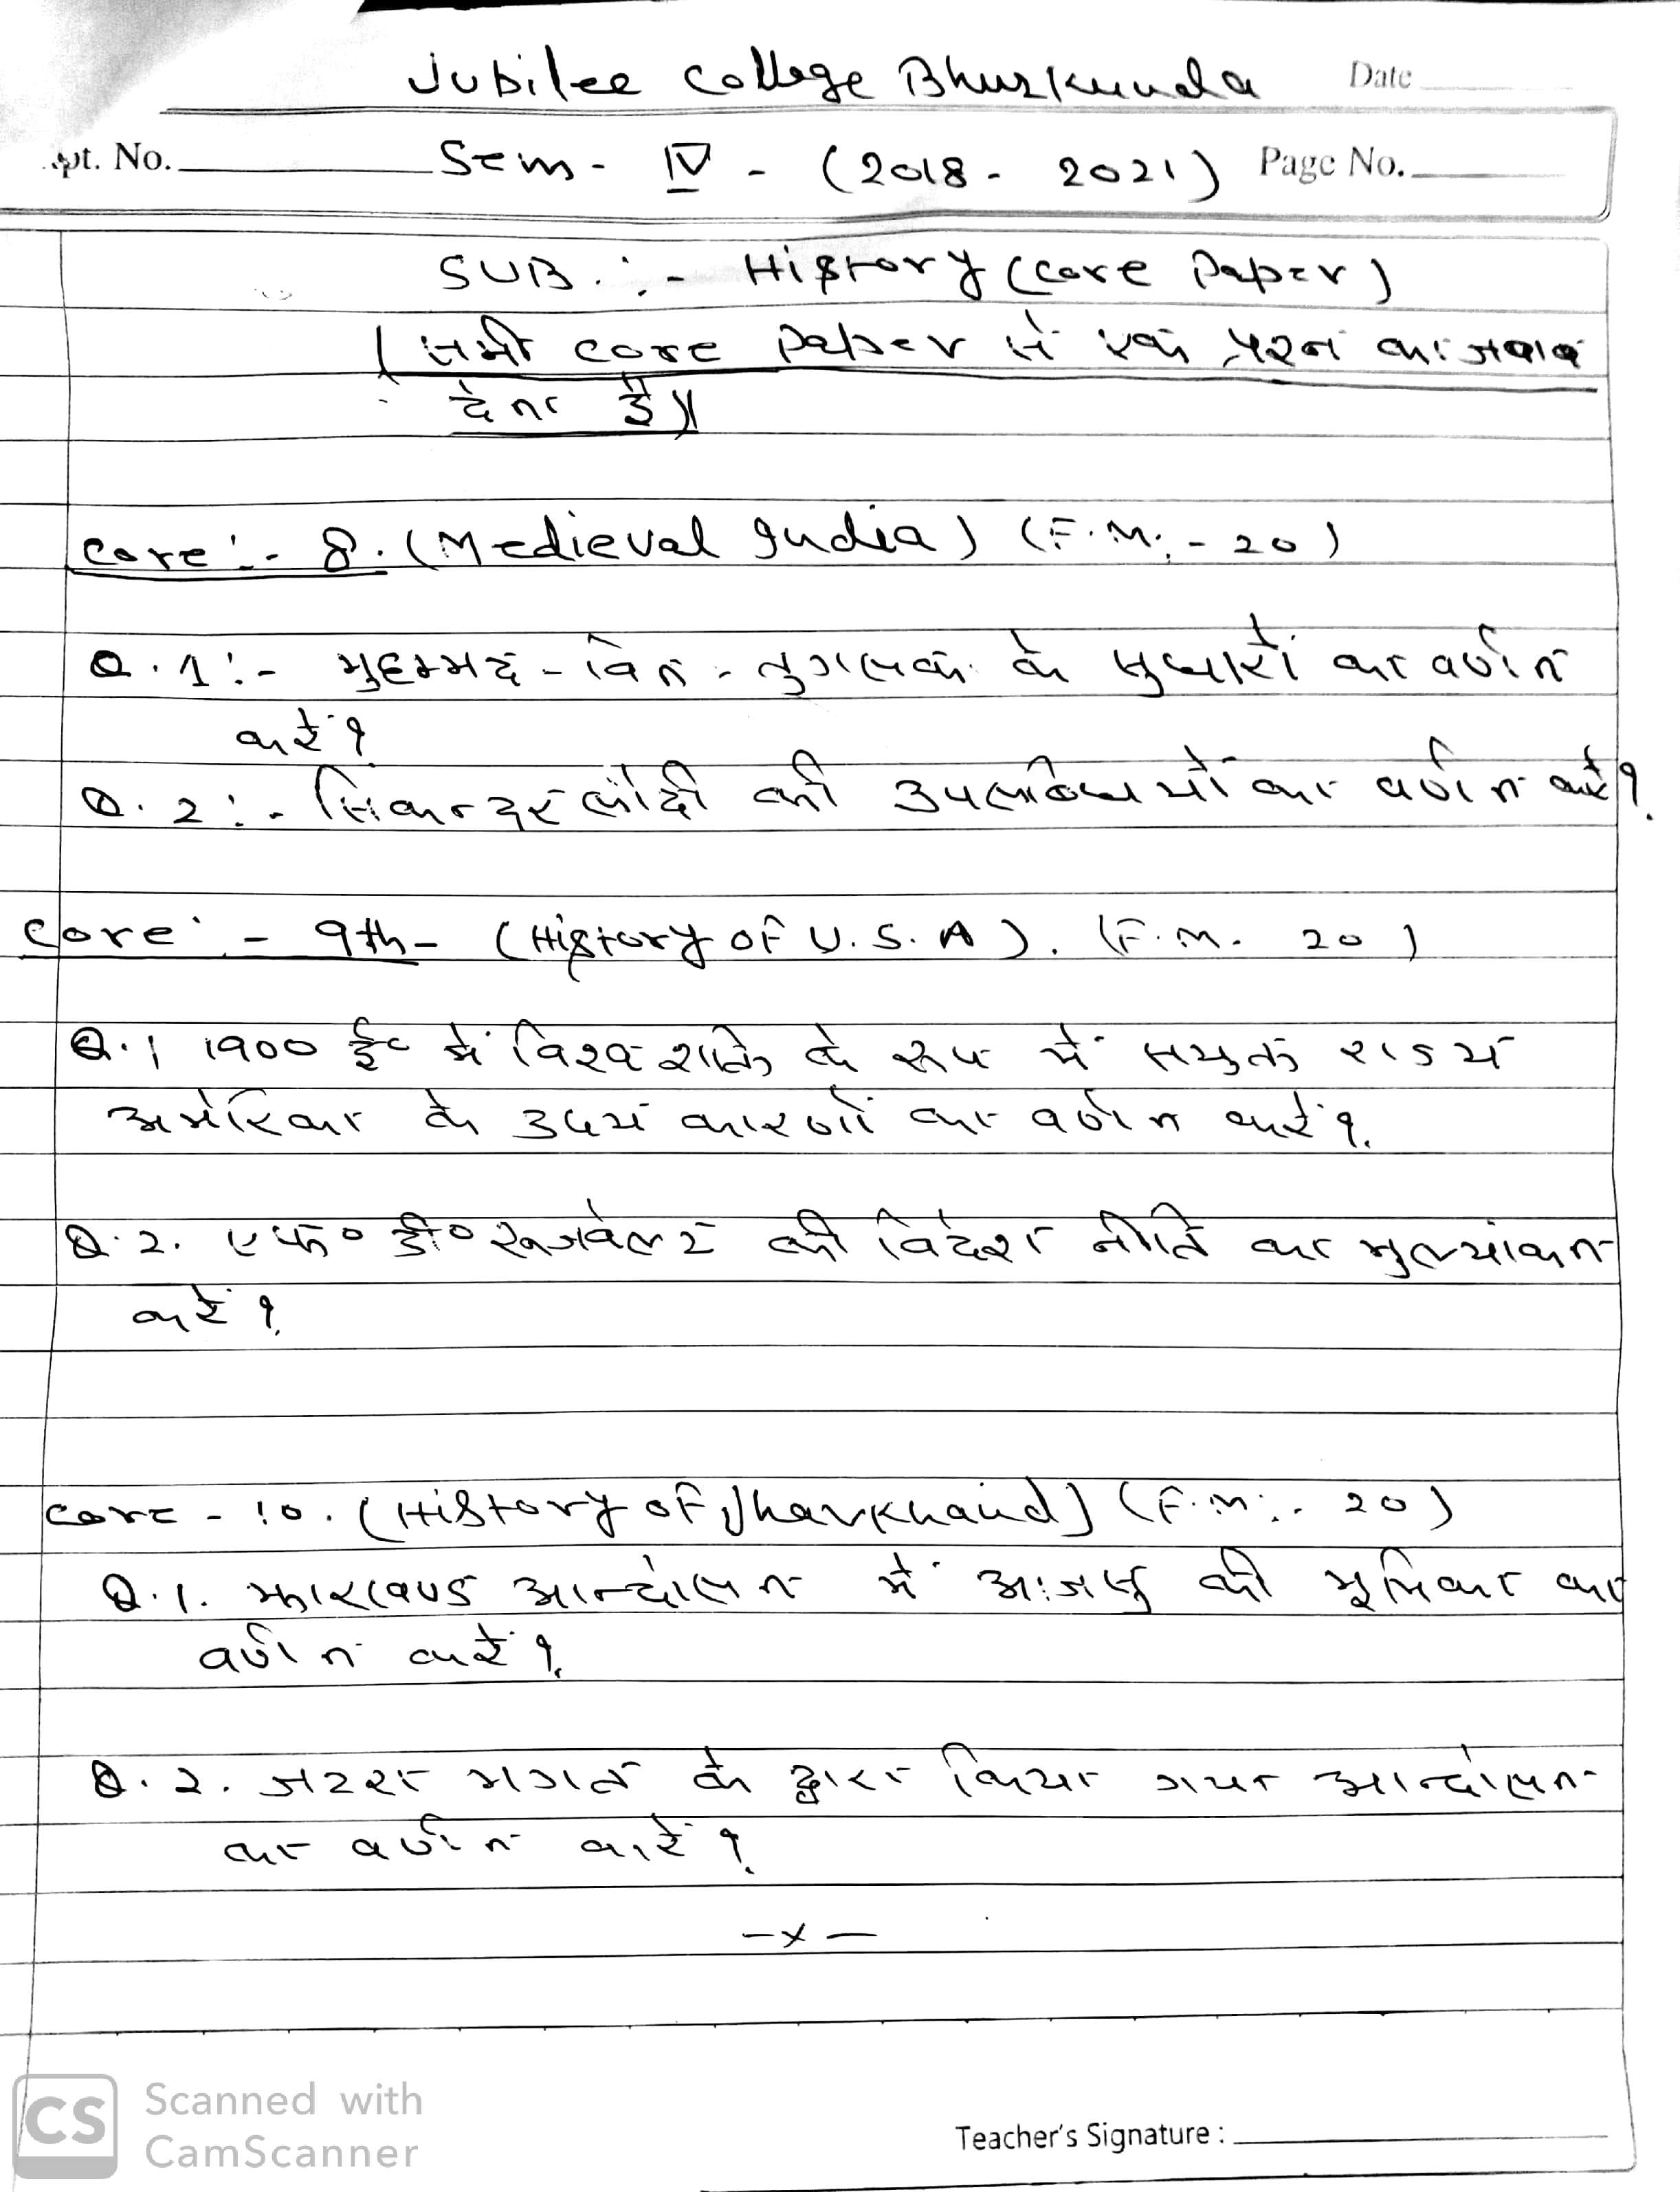 Jubilee College Bhurkunda Date
pt. No. Sem - IV - (2018 - 2021) Page No.
SUB. :- History (Core Paper)
(सभी core paper से एक प्रश्न का जवाब
देना है)।
Core :- 8. (Medieval India) (F.M. :- 20)
Q.1 :- मुहम्मद - बिन - तुगलक के सुधारों का वर्णन
करें?
Q.2 :- सिकन्दर लोदी की उपलब्धियों का वर्णन करें?
Core :- 9th - (History of U.S.A). (F.M. 20)
Q.1 1900 ई० में विश्व शक्ति के रूप में सयुक्त राज्य
अमेरिका के उदय कारणों का वर्णन करें?
Q.2. एफ० डी० रूजवेल्ट की विदेश नीति का मुल्यांकन
करें?
Core - 10. (History of Jharkhand) (F.M. :- 20)
Q.1. झारखण्ड आन्दोलन में आजसु की भूमिका का
वर्णन करें?
Q.2. जटरा भगत के द्वारा किया गया आन्दोलन
का वर्णन करें?
-x-
CS Scanned with
CamScanner
Teacher's Signature :